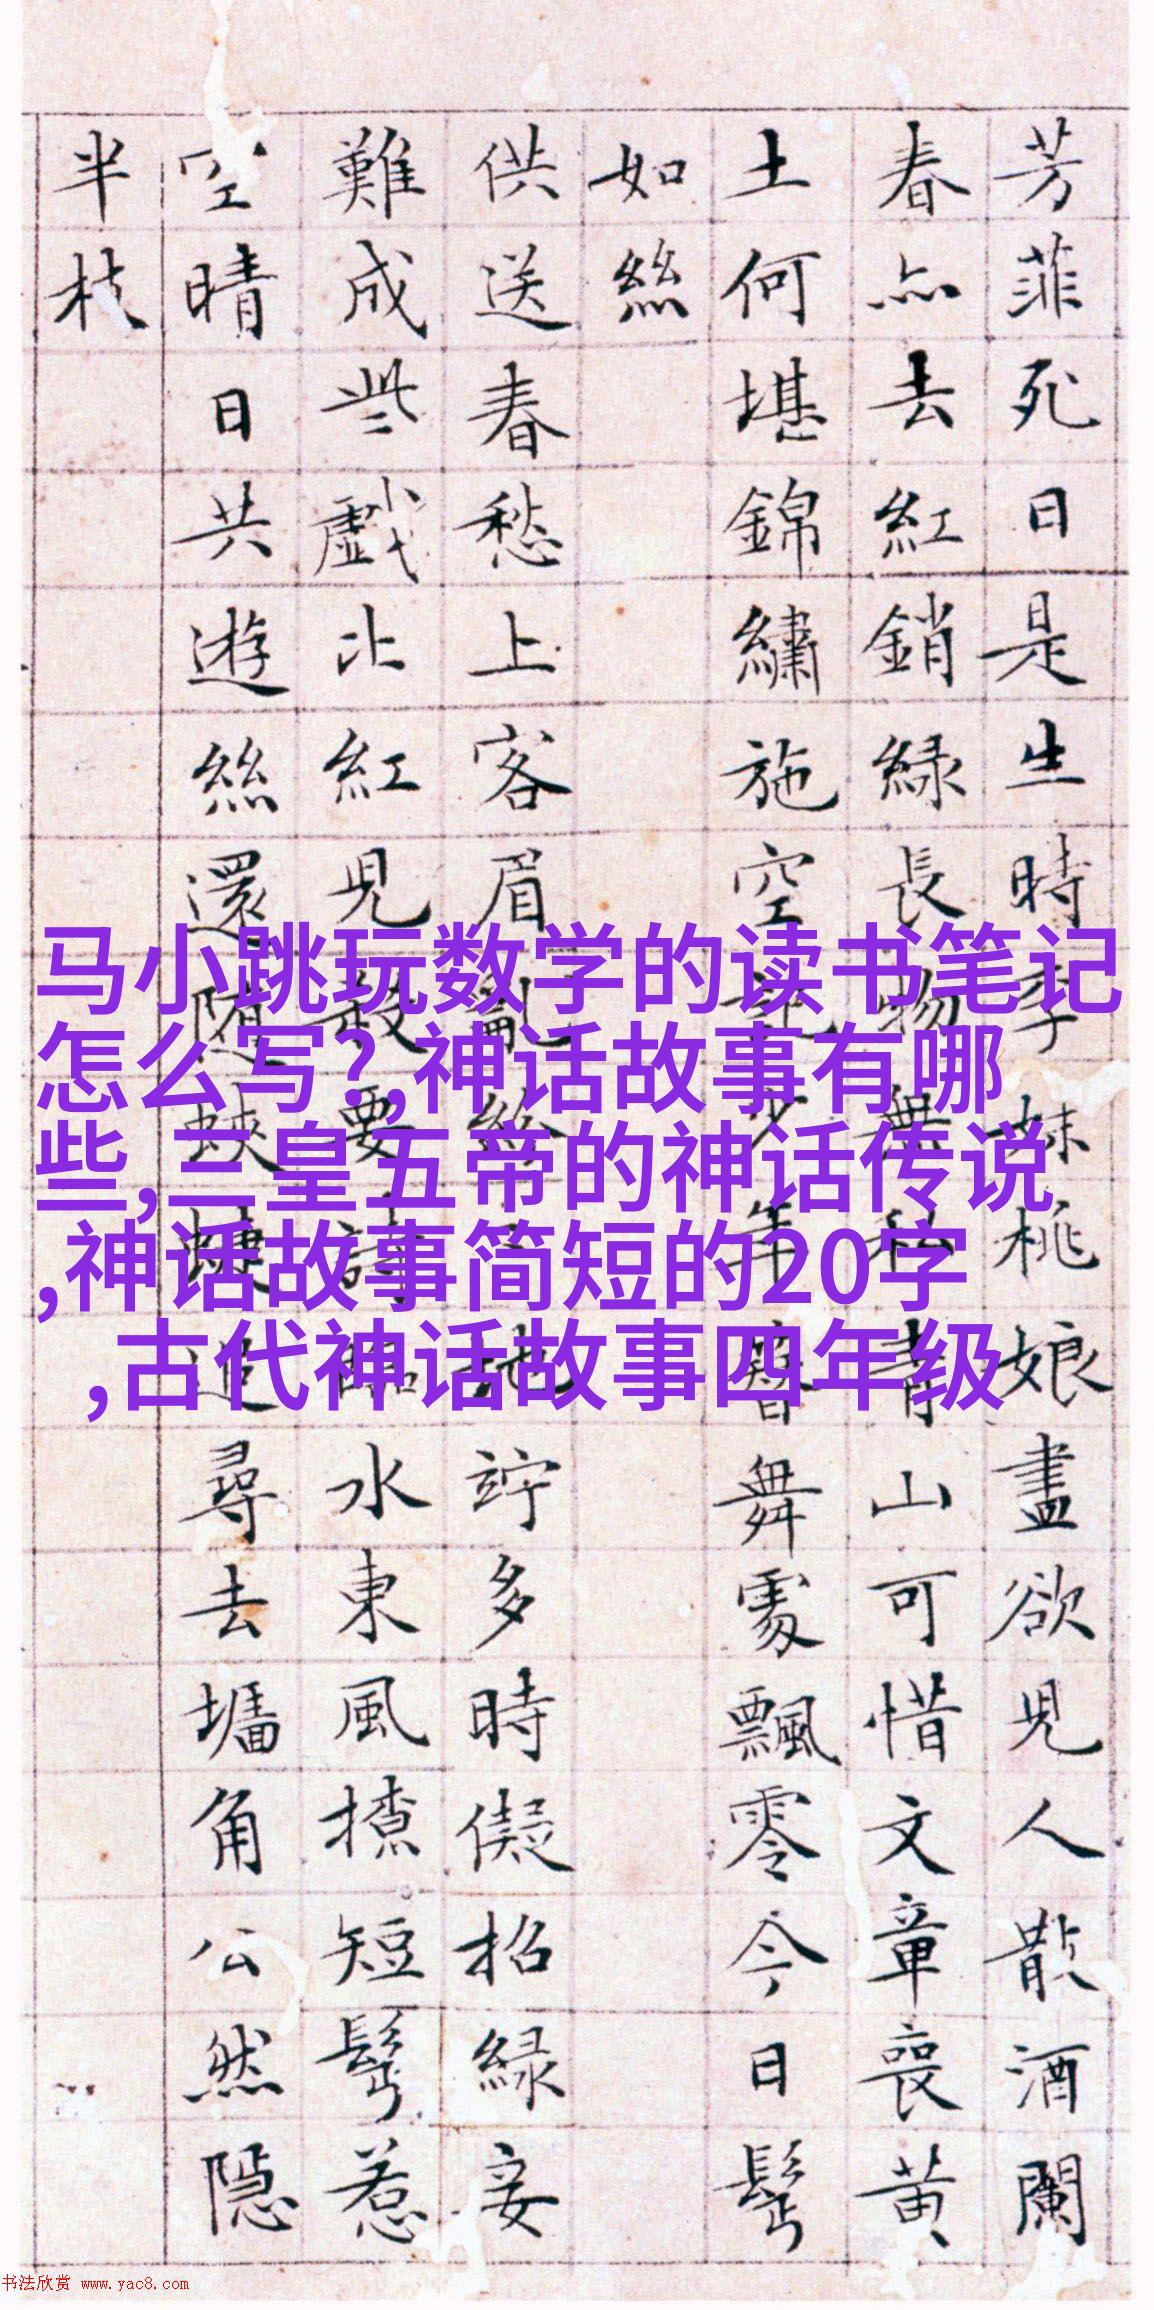 芳菲死日是生時李妹桃娘盡欲兒人散酒闌
春亦去紅銷綠長物無私青山可惜文章喪黄
土何堪錦繡施空記少年簪舞處飄零今日鬢
如絲
供送春愁上客眉亂紛紛地竚多時儗招綠妾
難成些戲比紅兒殺要詩臨水東風撩短鬢惹
空晴日共遊絲還隨蛺蜨追尋去墻角公然隱
半枝
马小跳玩数学的读书笔记
怎么写?,神话故事有哪
些,三皇五帝的神话传说
,神话故事简短的20字
,古代神话故事四年级
书法欣赏 www.yac8.com